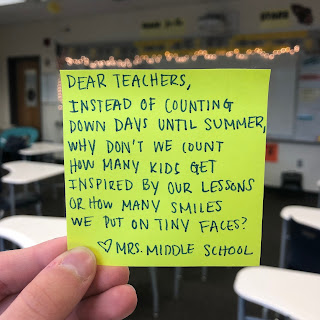 DEAR TEACHERS,
INSTEAD OF COUNTING
DOWN DAYS UNTIL SUMMER,
WHY DON'T WE COUNT
HOW MANY KIDS GET
INSPIRED BY OUR LESSONS
OR HOW MANY SMILES
WE PUT ON TINY FACES?
♡ MRS. MIDDLE SCHOOL